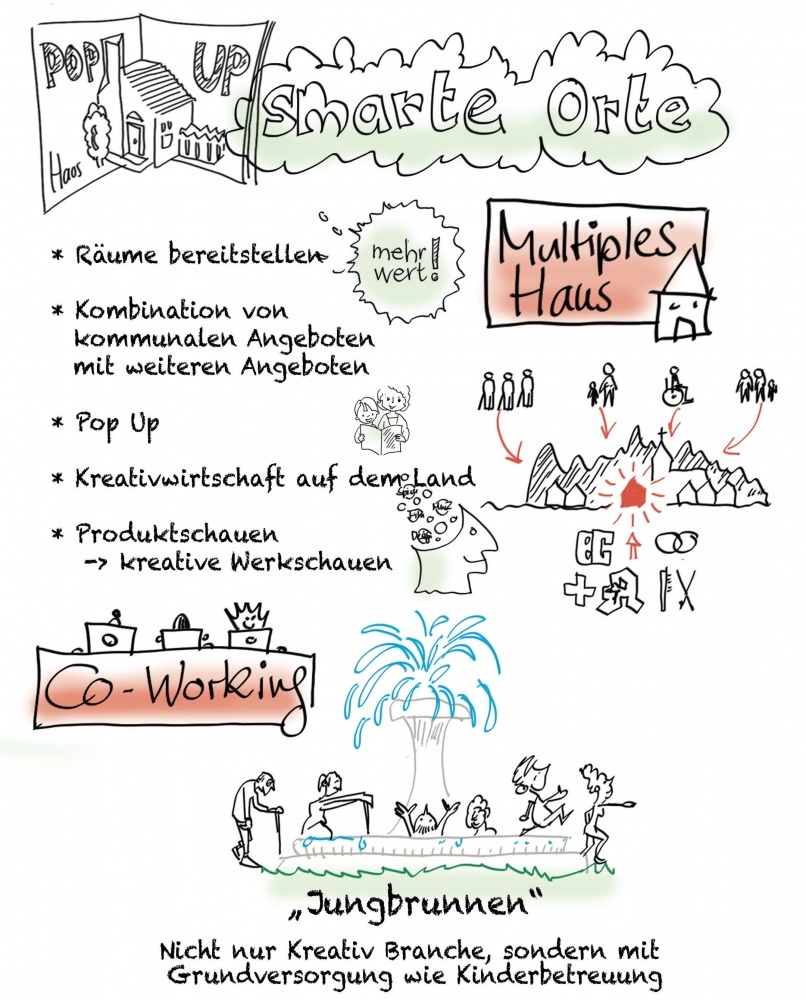 POP UP
Haos
smarte Orte
* Räume bereitstellen
mehr
wert!
Multiples
Haus
* Kombination von
kommunalen Angeboten
mit weiteren Angeboten
* Pop Up
* Kreativwirtschaft auf dem Land
* Produktschauen
-> kreative Werkschauen
Co-Working
„Jungbrunnen“
Nicht nur Kreativ Branche, sondern mit
Grundversorgung wie Kinderbetreuung